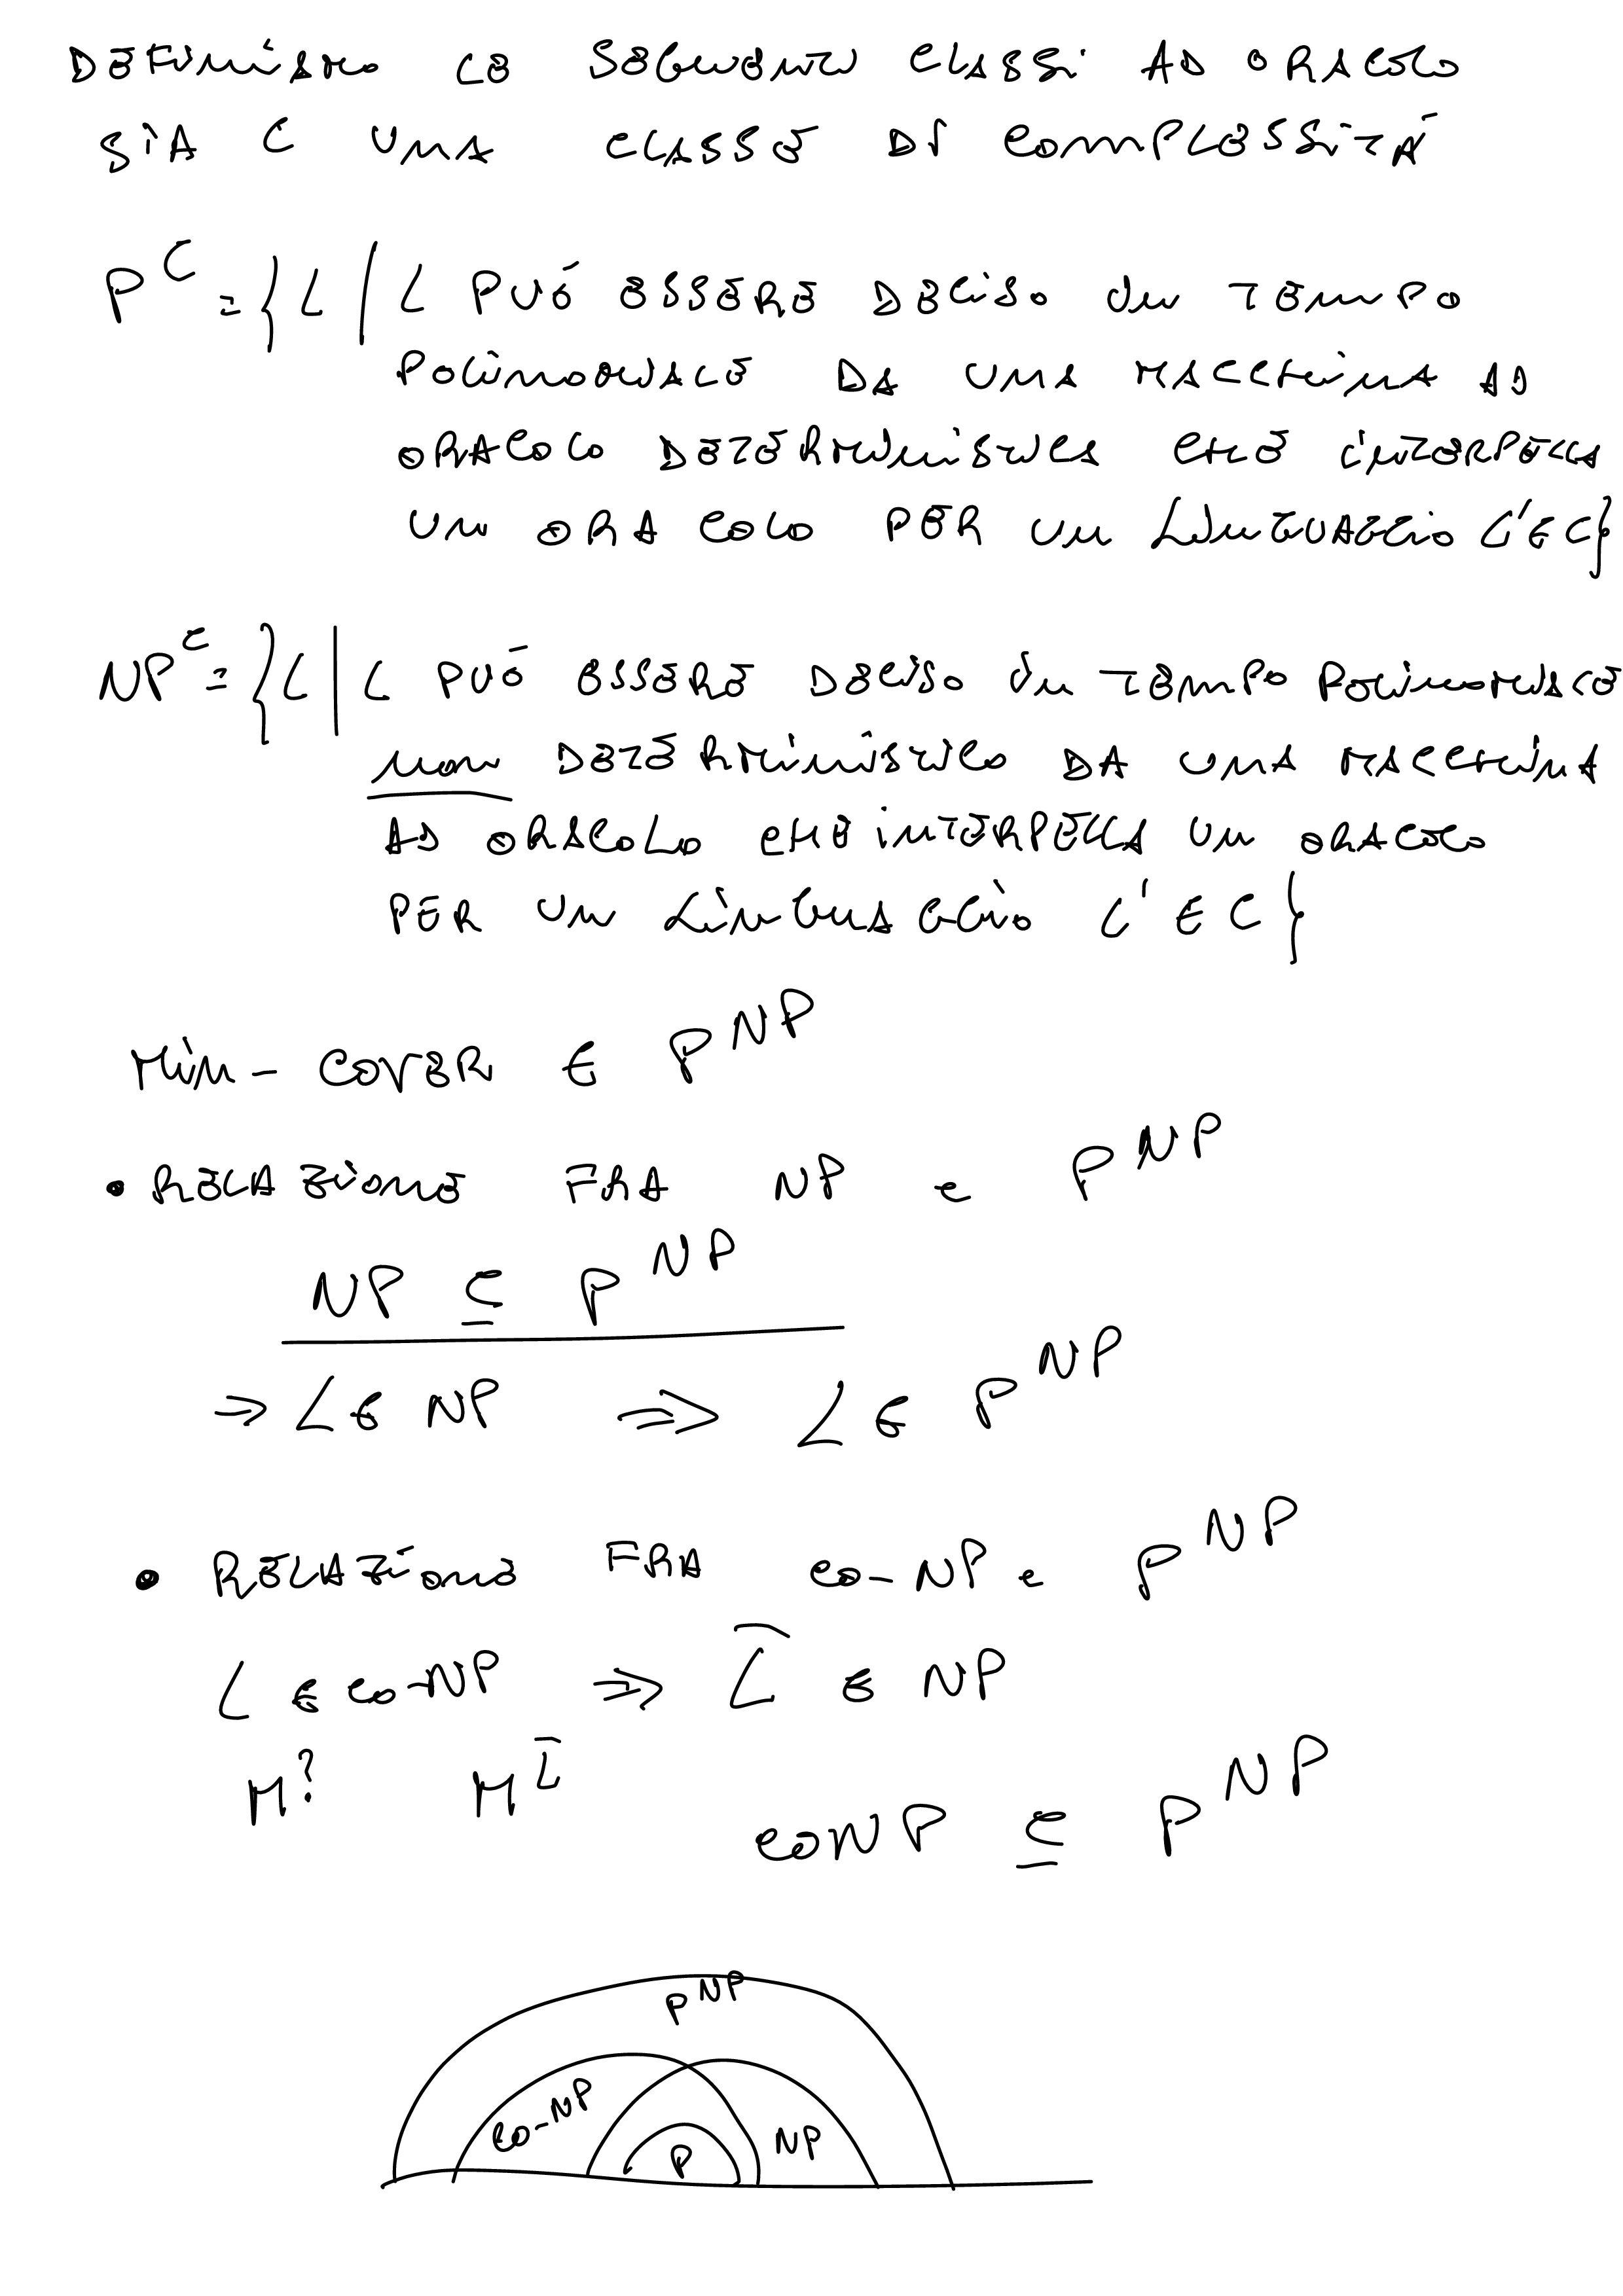 DEFINIAMO LE SEGUENTI CLASSI AD ORACOLO
SIA C UNA CLASSE DI COMPLESSITÀ
P^C = {L | L PUÓ ESSERE DECISO IN TEMPO
POLINOMIALE DA UNA MACCHINA AD
ORACOLO DETERMINISTICA CHE INTERPELLA
UN ORACOLO PER UN LINGUAGGIO L' ∈ C}
NP^C = {L | L PUÓ ESSERE DECISO IN TEMPO POLINOMIALE
NON DETERMINISTICO DA UNA MACCHINA
AD ORACOLO CHE INTERPELLA UN ORACOLO
PER UN LINGUAGGIO L' ∈ C}
MIN-COVER ∈ P^NP
• RELAZIONE FRA NP e P^NP
NP ⊆ P^NP
⇒ L ∈ NP ⇒ L ∈ P^NP
• RELAZIONE FRA co-NP e P^NP
L ∈ co-NP ⇒ L̅ ∈ NP
M^? M^L̅
coNP ⊆ P^NP
P^NP
co-NP
P
NP